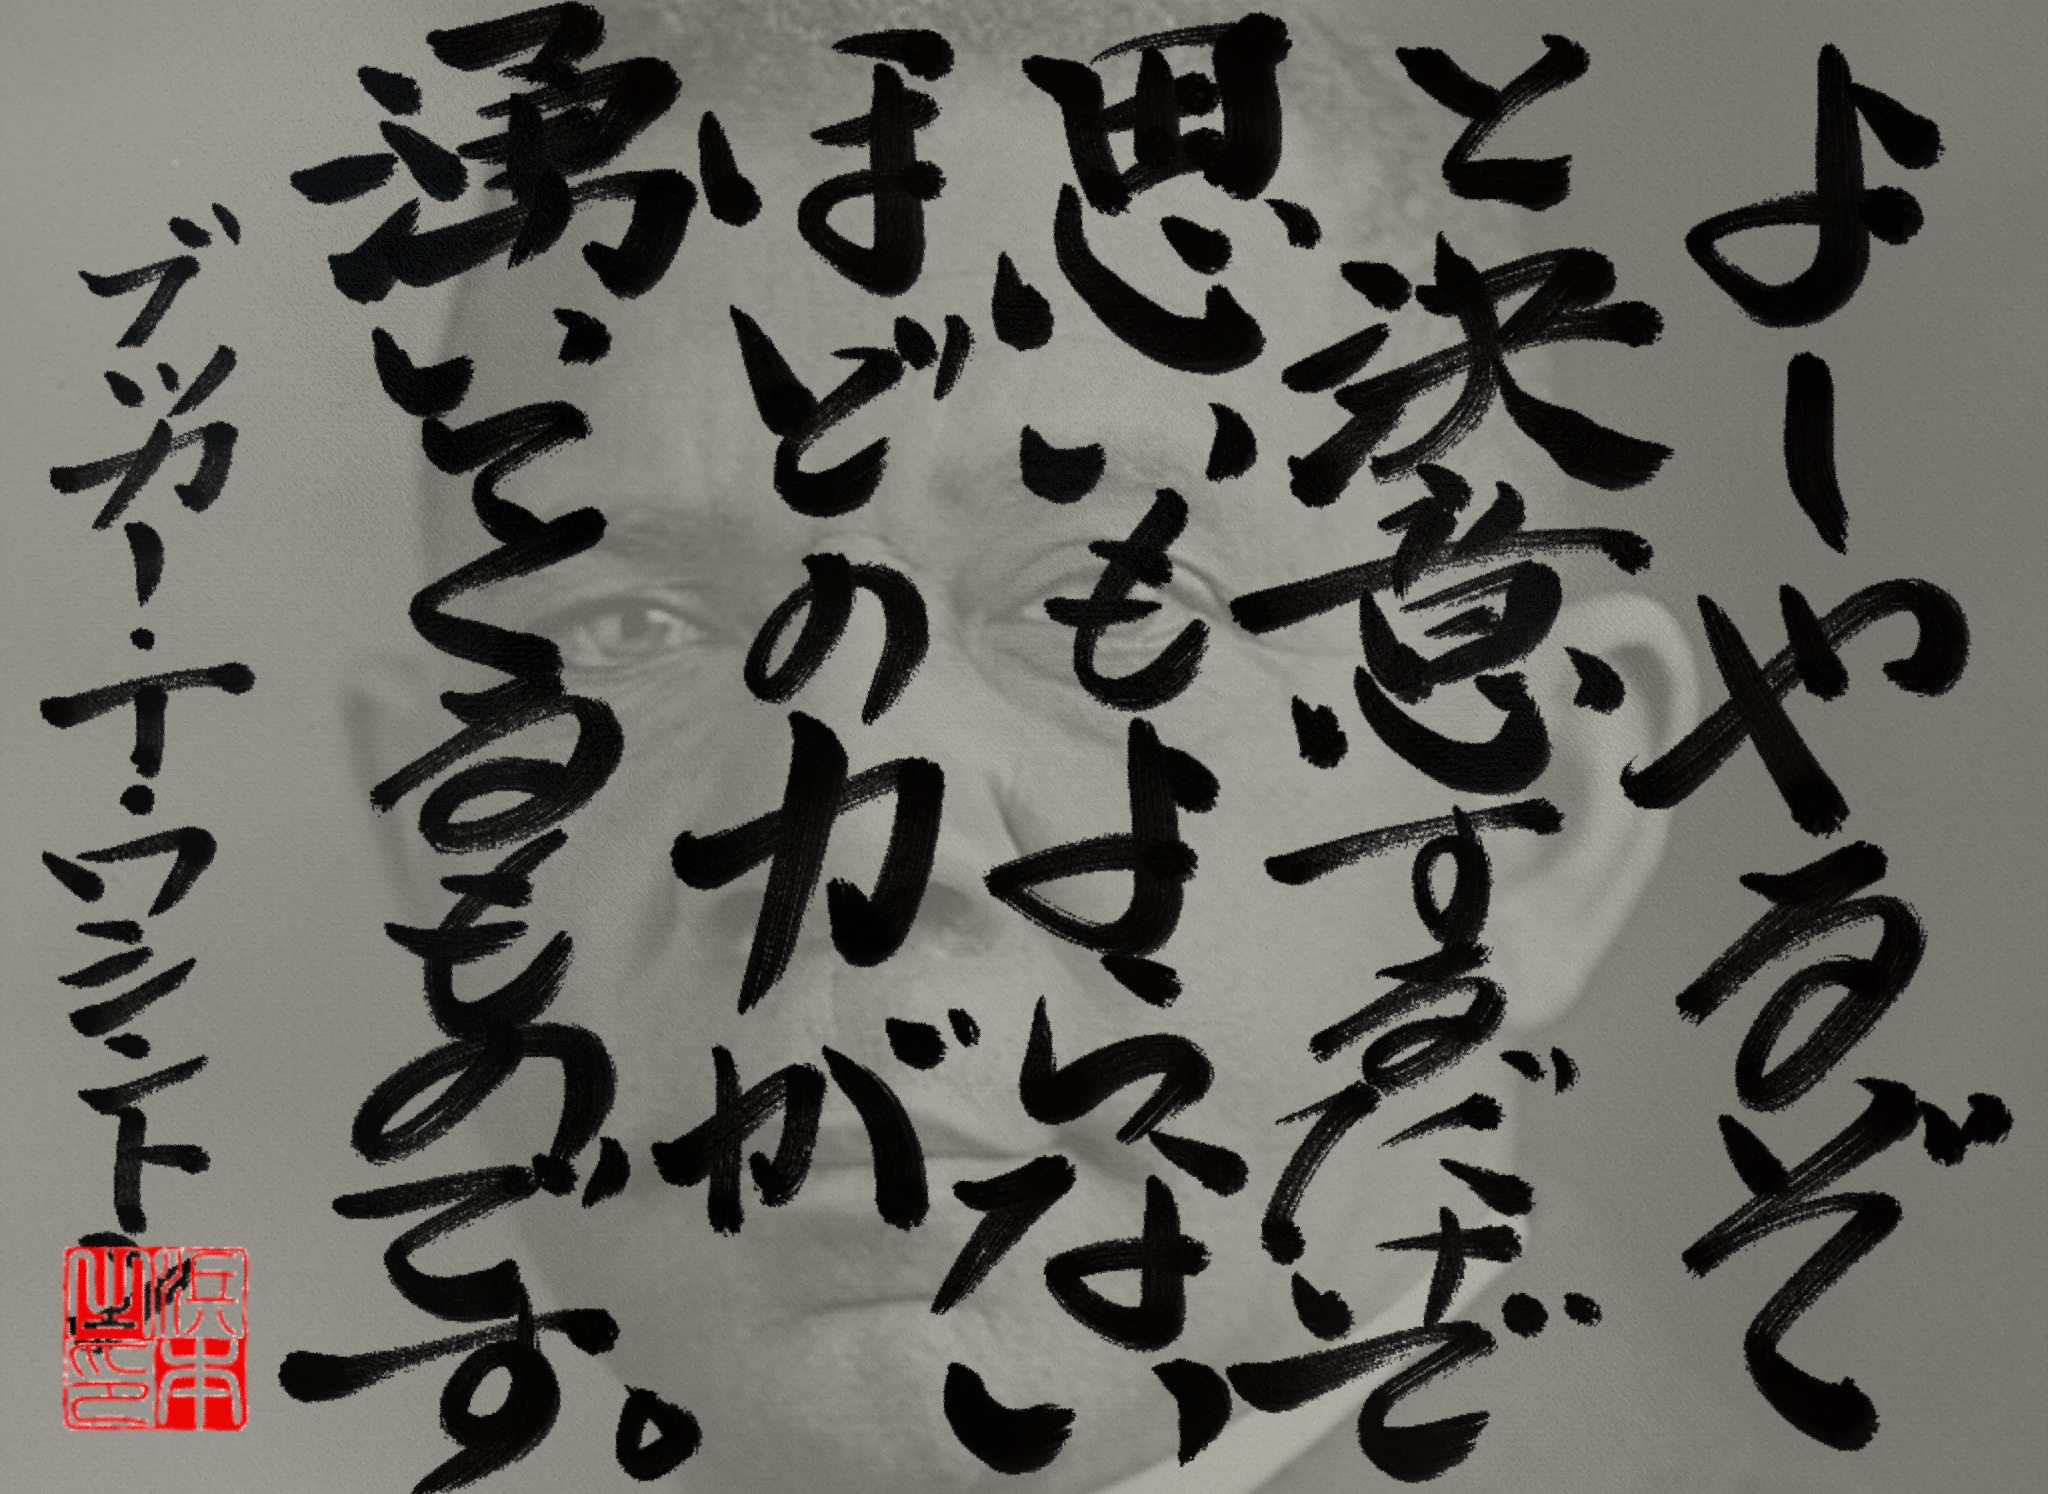 よーやるぞ
と決意するだけで
思いもよらない
ほどの力が
湧いてくるものです。
ブッカー・T・ワシントン
浜本
之印